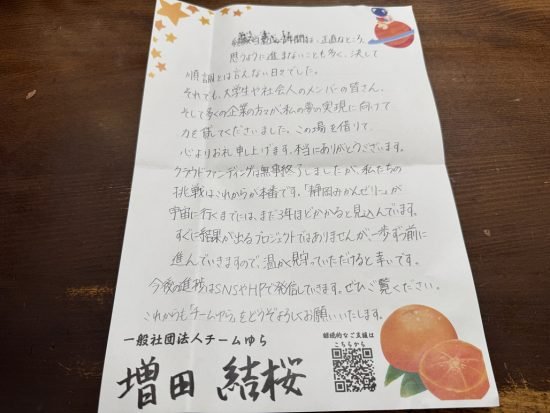 思うように進まないことも多く、決して
順調とは言えない日々でした。
それでも、大学生や社会人のメンバーの皆さん、
そして多くの企業の方々が、私の夢の実現に向けて
力を貸してくださいました。この場を借りて、
心よりお礼申し上げます。本当にありがとうございます。
クラウドファンディングは無事終了しましたが、私たちの
挑戦はこれからが本番です。「静岡みかんゼリー」が
宇宙に行くまでには、まだ3年ほどかかると見込んでいます。
すぐに結果が出るプロジェクトではありませんが、一歩ずつ前に
進んでいきますので、温かく見守っていただけると幸いです。
今後の進捗はSNSやHPで発信していきます。ぜひご覧ください。
これからも「チームゆら」をどうぞよろしくお願いいたします。
一般社団法人チームゆら
増田 結桜
継続的なご支援は
こちらから